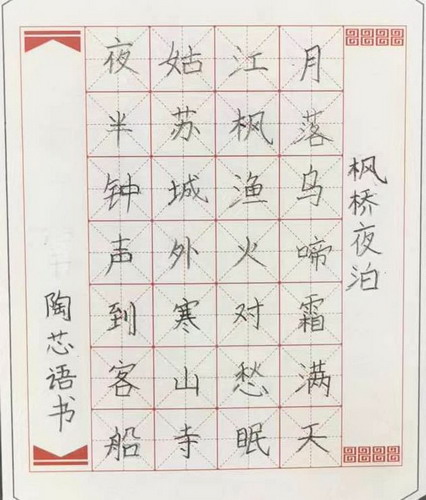 枫桥夜泊
月落乌啼霜满天
江枫渔火对愁眠
姑苏城外寒山寺
夜半钟声到客船
陶芯语书